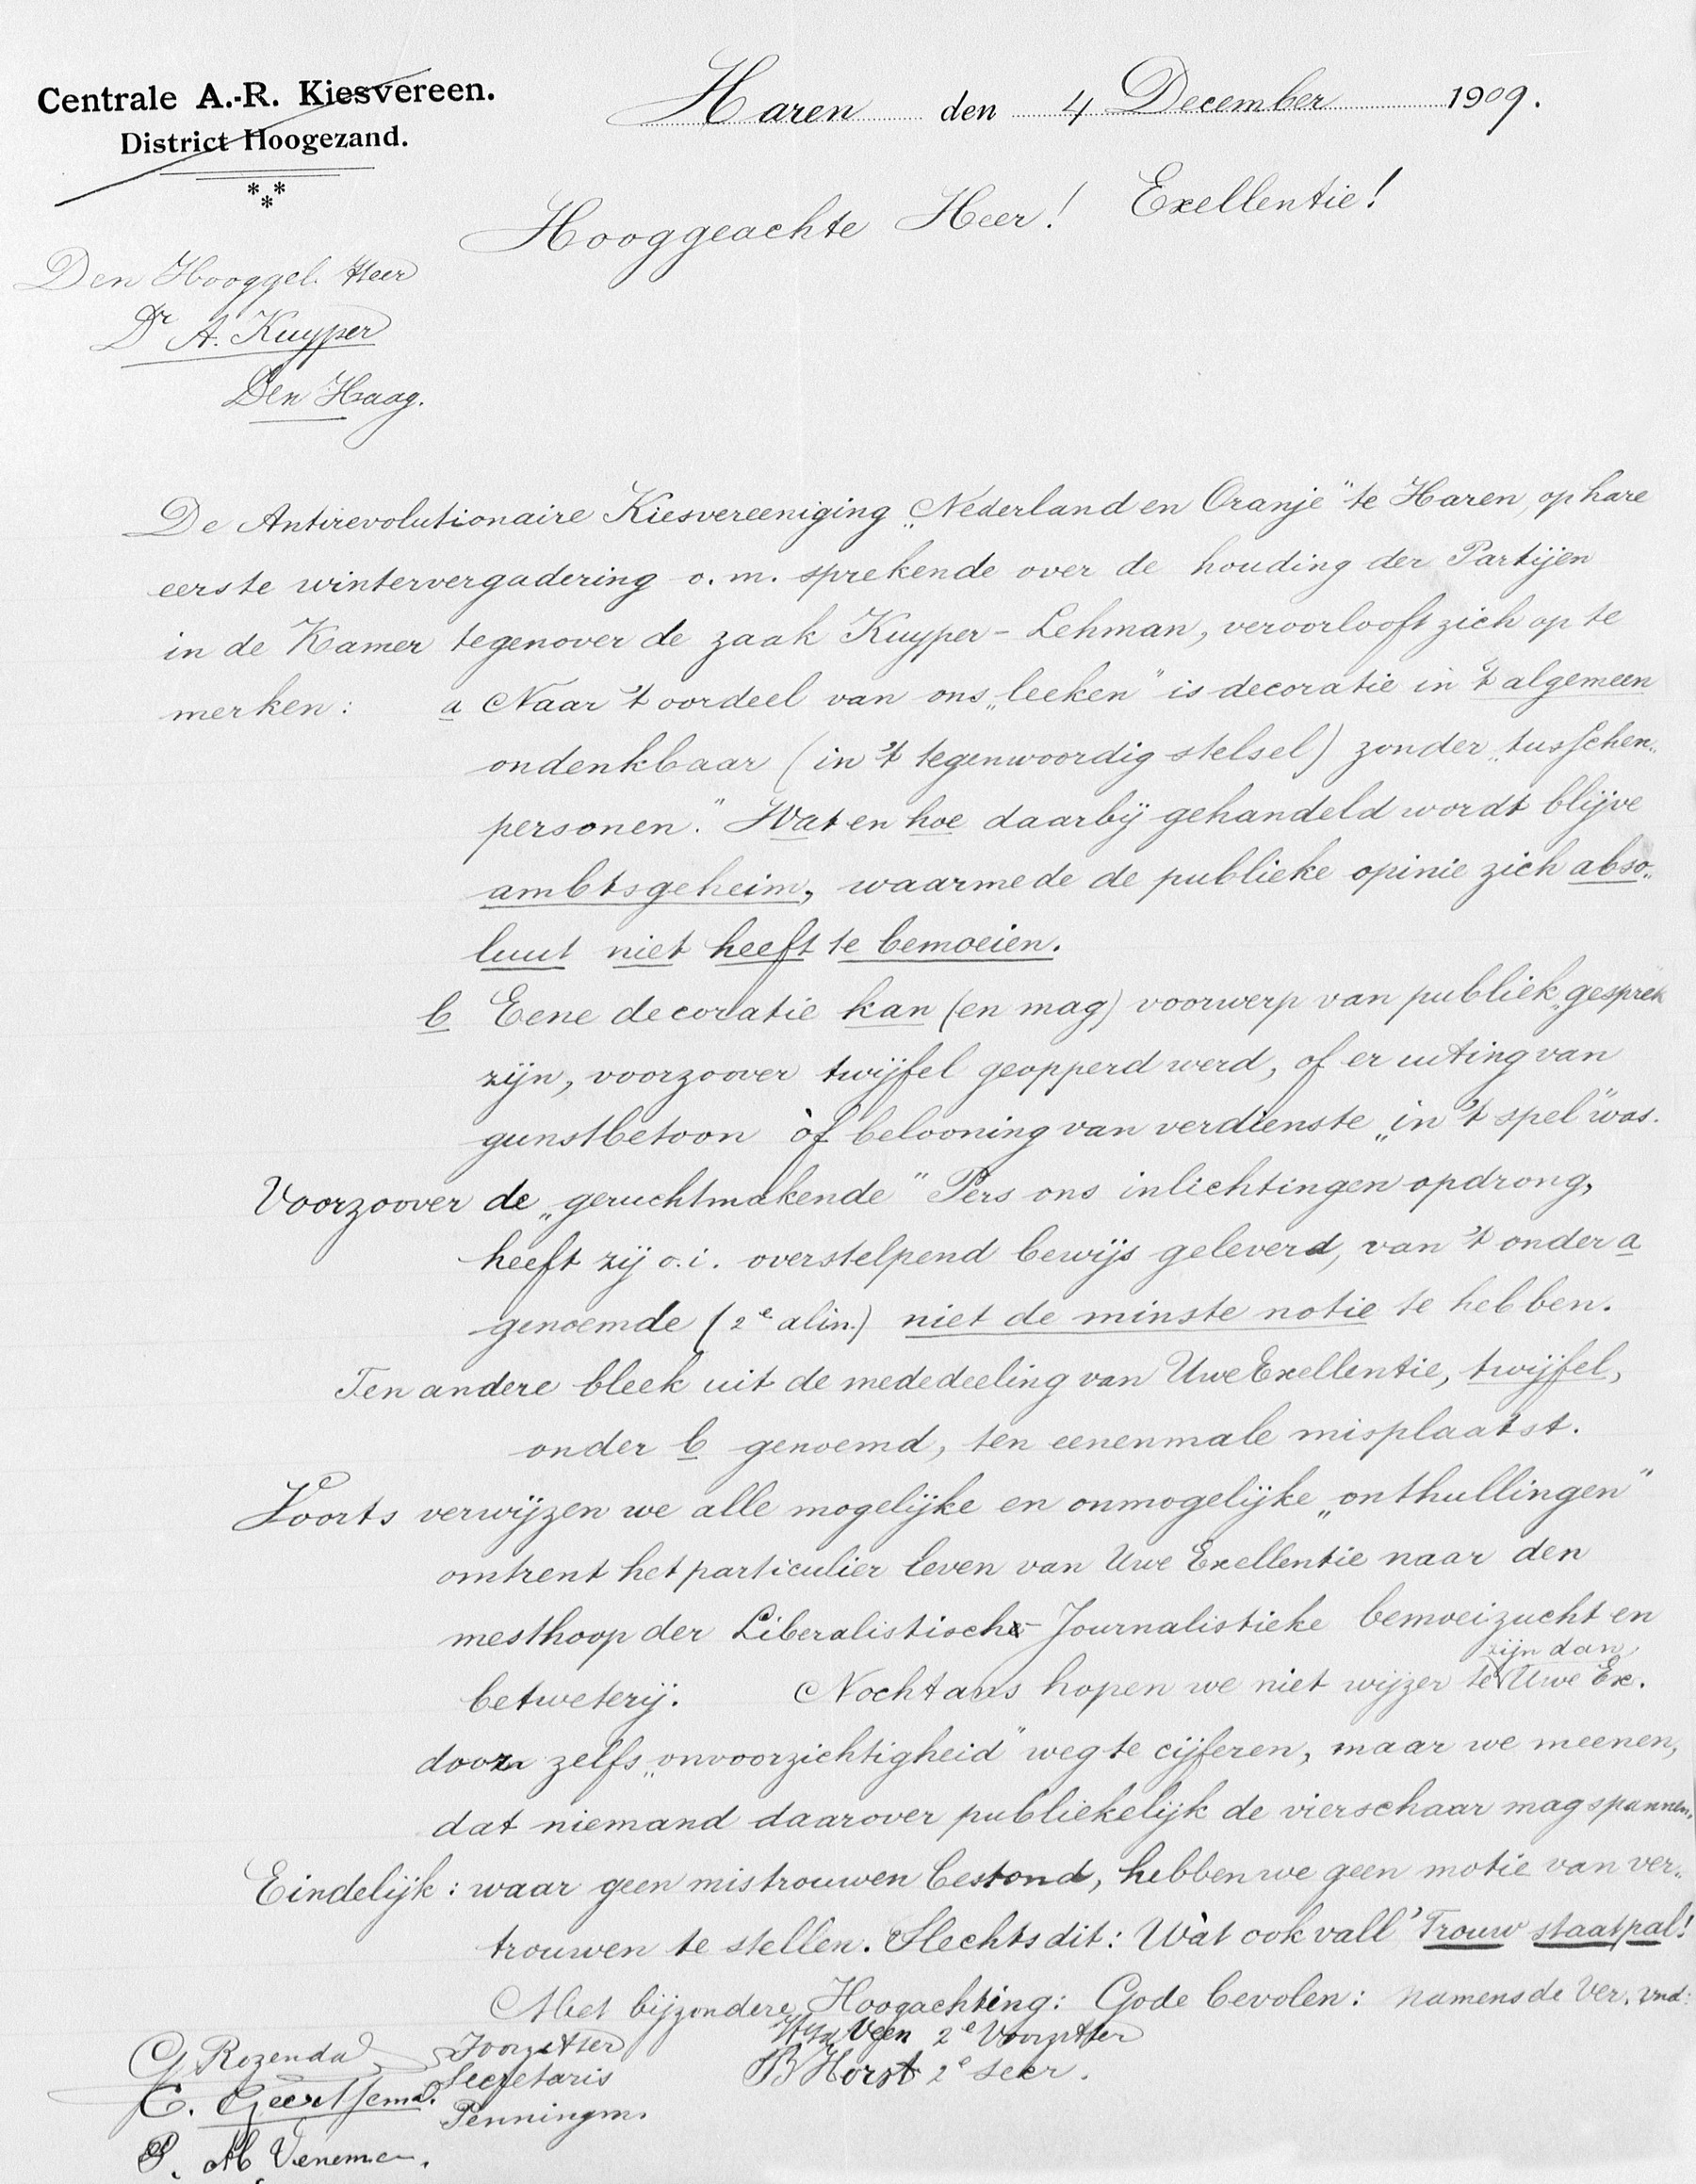 Centrale A.-R. Kiesvereen.
District Hoogezand.
Haren den 4 December 1909.
Hooggeachte Heer! Exellentie!
Den Hooggel. Heer
Dr A. Kuyper
Den Haag.
De Antirevolutionaire Kiesvereeniging „Nederland en Oranje" te Haren, op hare
eerste wintervergadering o.m. sprekende over de houding der Partijen
in de Kamer tegenover de zaak Kuyper - Lehman, veroorlooft zich op te
merken: a Naar 't oordeel van ons „leeken" is decoratie in 't algemeen
ondenkbaar (in 't tegenwoordig stelsel) zonder „tusschen„
personen." Wat en hoe daarbij gehandeld wordt blijve
ambtsgeheim, waarmede de publieke opinie zich abso„
luut niet heeft te bemoeien.
b Eene decoratie kan (en mag) voorwerp van publiek gesprek
zijn, voorzoover twijfel geopperd werd, of er uiting van
gunstbetoon òf belooning van verdienste „in 't spel" was.
Voorzoover de „geruchtmakende" Pers ons inlichtingen opdrong,
heeft zij o.i. overstelpend bewijs geleverd, van 't onder a
genoemde (2e alin.) niet de minste notie te hebben.
Ten andere bleek uit de mededeeling van Uwe Exellentie, twijfel,
onder b genoemd, ten eenenmale misplaatst.
Voorts verwijzen we alle mogelijke en onmogelijke „onthullingen"
omtrent het particulier leven van Uwe Exellentie naar den
mesthoop der Liberalistisch- Journalistieke bemoeizucht en
betweterij. Nochtans hopen we niet wijzer te zijn dan Uwe Ex.
door zelfs „onvoorzichtigheid" weg te cijferen, maar we meenen,
dat niemand daarover publiekelijk de vierschaar mag spannen.
Eindelijk: waar geen mistrouwen bestond, hebben we geen motie van ver„
trouwen te stellen. Slechts dit: Wàt ook vall' Trouw staat pal!
Met bijzondere Hoogachting: Gode bevolen: namens de Ver. vnd:
G Rozendal Voorzitter
Veen 2e Voorzitter
C. Geertsema. Secretaris
B Horst 2e Secr.
Penningm.
P. M Venema.